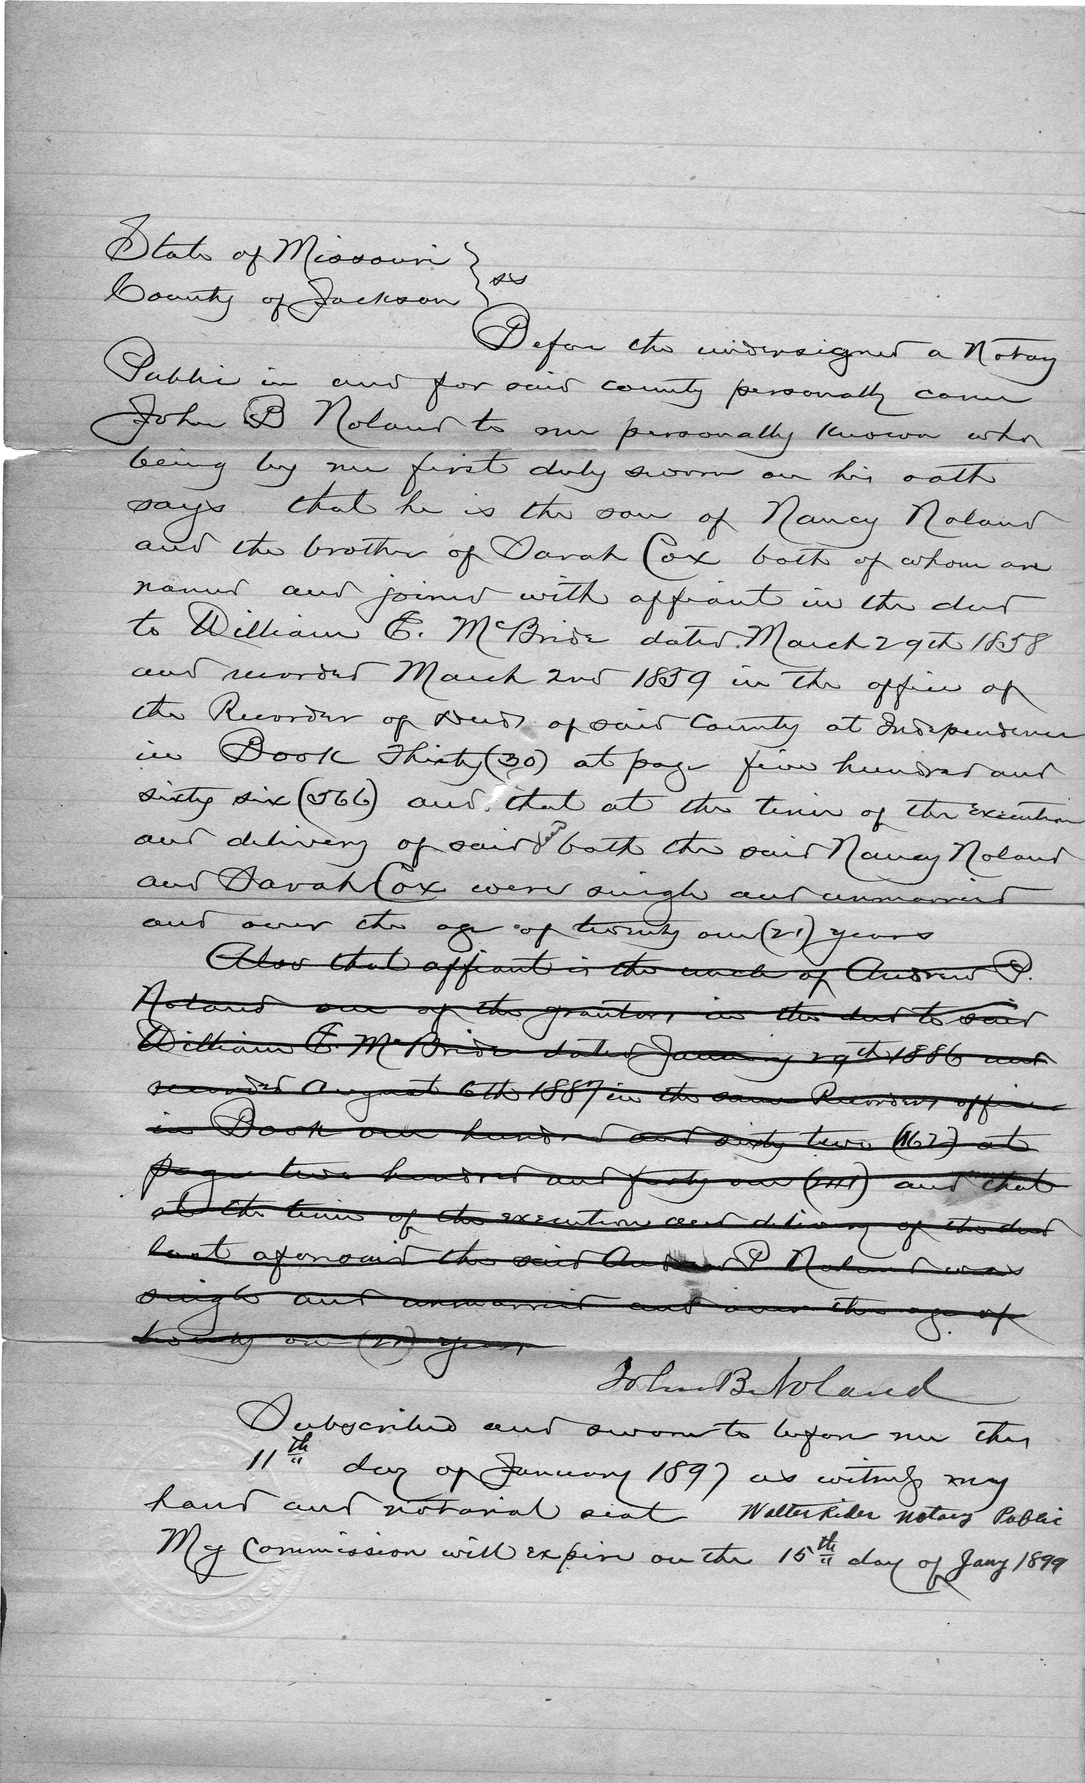 State of Missouri } ss
County of Jackson }
Before the undersigned a Notary
Public in and for said county personally came
John B Noland to me personally known who
being by me first duly sworn on his oath
says that he is the son of Nancy Noland
and the brother of Sarah Cox both of whom are
named and joined with affiant in the deed
to William E. McBride dated March 29th 1858
and recorded March 2nd 1859 in the office of
the Recorder of Deeds of said County at Independence
in Book Thirty (30) at page five hundred and
sixty six (566) and that at the time of the execution
and delivery of said deed both the said Nancy Noland
and Sarah Cox were single and unmarried
and over the age of twenty one (21) years
Also that affiant is the uncle of Andrew P.
Noland one of the grantors in the deed to said
William E. McBride dated January 29th 1886 and
recorded August 6th 1887 in the same Recorders office
in Book one hundred and sixty two (162) at
page two hundred and forty one (241) and that
at the time of the execution and delivery of the deed
last aforesaid the said Andrew P Noland was
single and unmarried and over the age of
twenty one (21) years
John B. Noland
Subscribed and sworn to before me this
11th day of January 1897 as witness my
hand and notarial seal Walter Rider Notary Public
My Commission will expire on the 15th day of Jany 1899